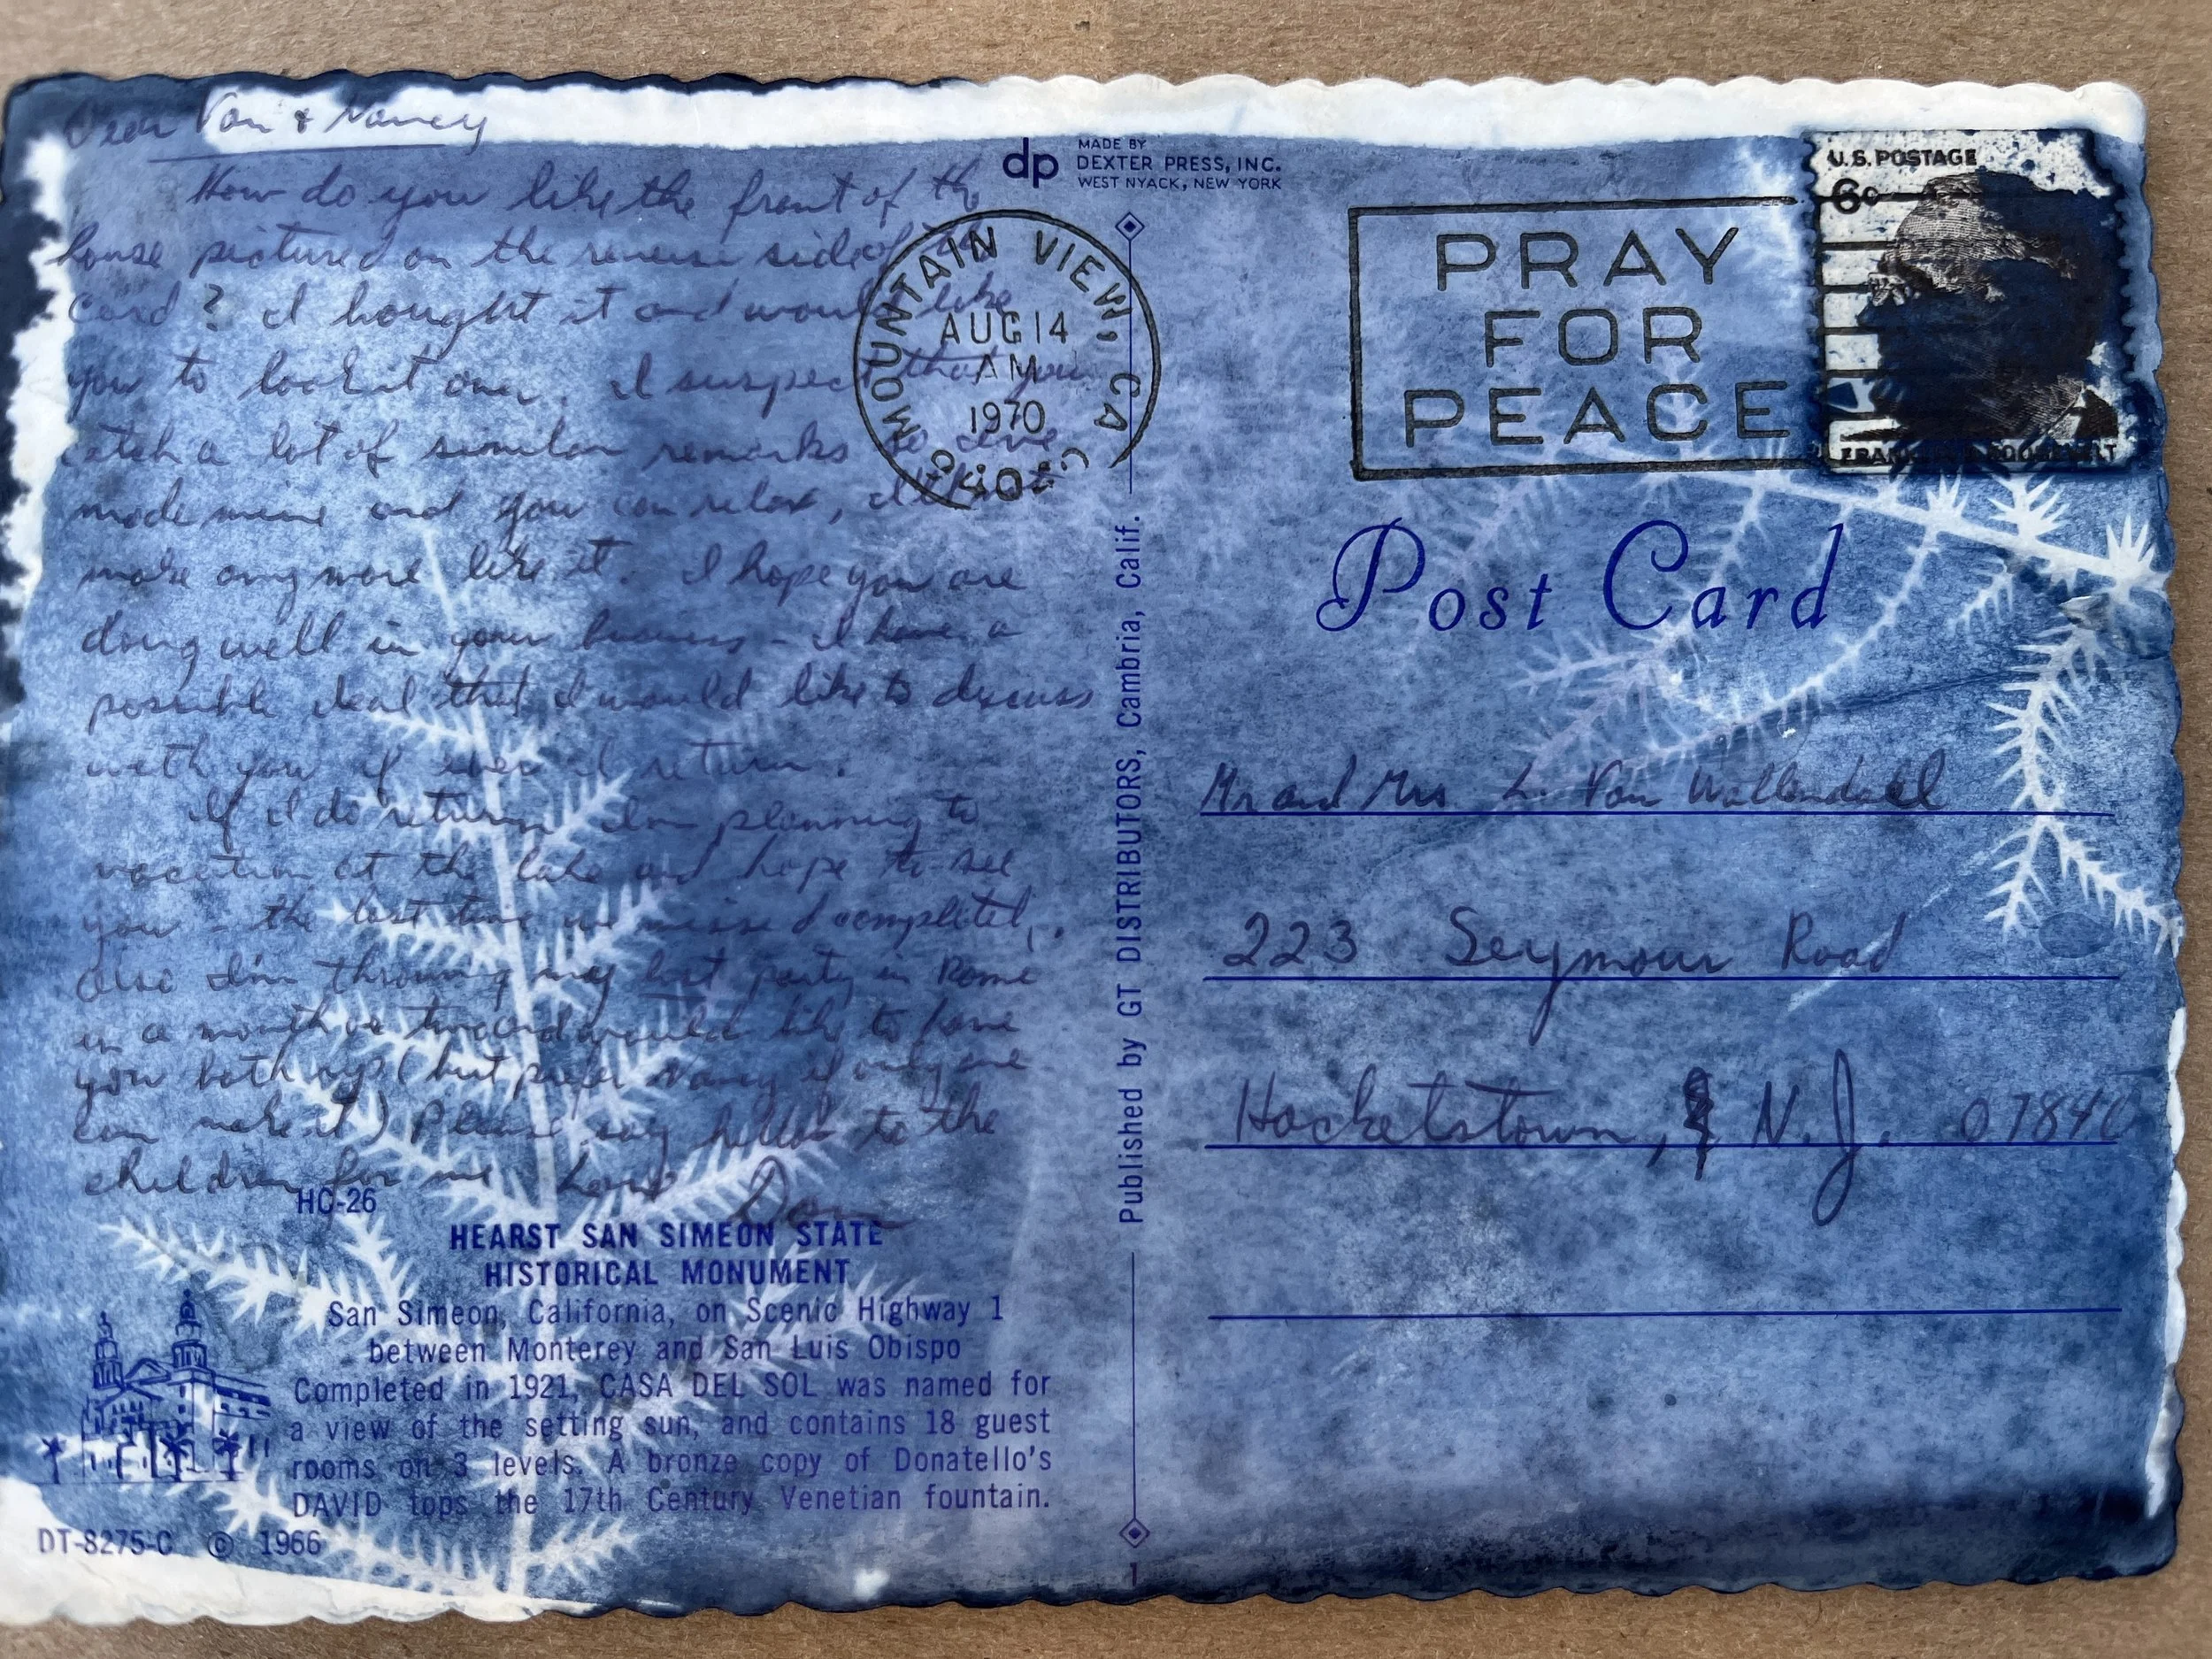 Dear Van & Nancy
How do you like the front of the
house pictured on the reverse side of the
Card? I bought it and would like
you to look it over. I suspect that you
catch a lot of similar remarks so I've
made mine and you can relax, I'll not
make any more like it. I hope you are
doing well in your business - I have a
possible deal that I would like to discuss
with you if ever I return.
If I do return I'm planning to
vacation at the lake and hope to see
you - the last time we missed completely.
Also I'm throwing my last party in Rome
in a month or two and would like to have
you both up (but prefer Nancy if only one
can make it) Please say hello to the
children for me Love Don
HC-26
HEARST SAN SIMEON STATE
HISTORICAL MONUMENT
San Simeon, California, on Scenic Highway 1
between Monterey and San Luis Obispo
Completed in 1921, CASA DEL SOL was named for
a view of the setting sun, and contains 18 guest
rooms on 3 levels. A bronze copy of Donatello's
DAVID tops the 17th Century Venetian fountain.
DT-8275-C © 1966
dp
MADE BY
DEXTER PRESS, INC.
WEST NYACK, NEW YORK
MOUNTAIN VIEW, CA
AUG 14
AM
1970
Published by GT DISTRIBUTORS, Cambria, Calif.
1
PRAY
FOR
PEACE
U.S. POSTAGE
6c
Post Card
Mr and Mrs. L. Van Wallendael
223 Seymour Road
Hacketstown, N.J. 07840